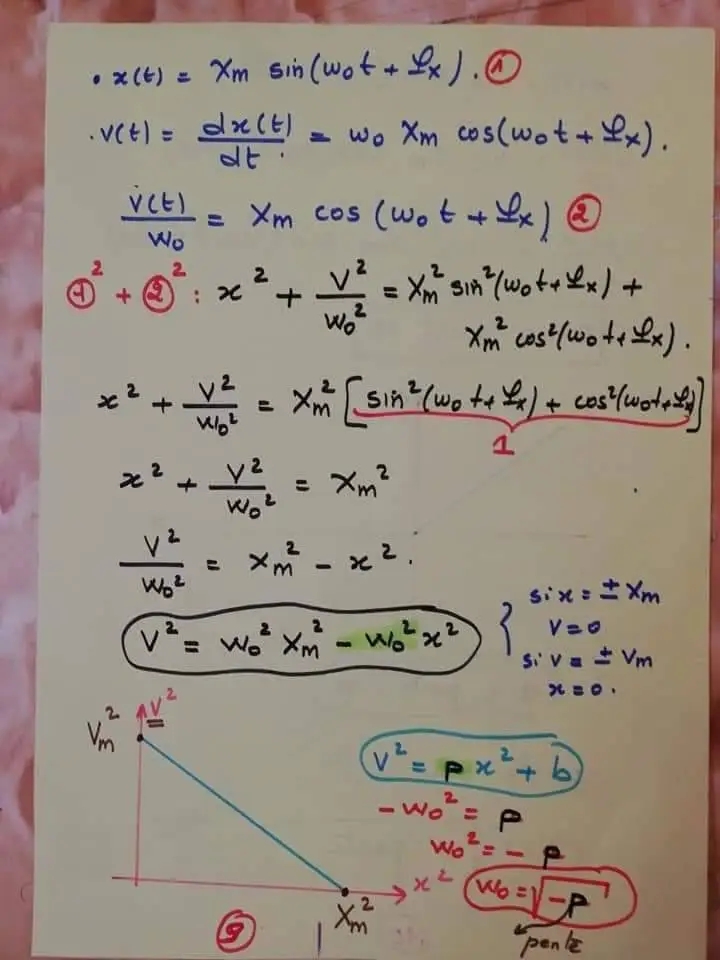 • x(t) = Xm sin(w₀t + φx). ①
. v(t) = dx(t)/dt = w₀ Xm cos(w₀t + φx).
v(t)/w₀ = Xm cos (w₀t + φx) ②
①² + ②² : x² + V²/w₀² = Xm² sin²(w₀t + φx) +
Xm² cos²(w₀t + φx).
x² + V²/w₀² = Xm² [sin²(w₀t + φx) + cos²(w₀t + φx)]
1
x² + V²/w₀² = Xm²
V²/w₀² = Xm² - x².
V² = w₀² Xm² - w₀² x²
si x = ± Xm
V = 0
si v = ± Vm
x = 0.
V²
Vm²
x²
Xm²
V² = P x² + b
- w₀² = P
w₀² = - P
w₀ = √-P
pente
9